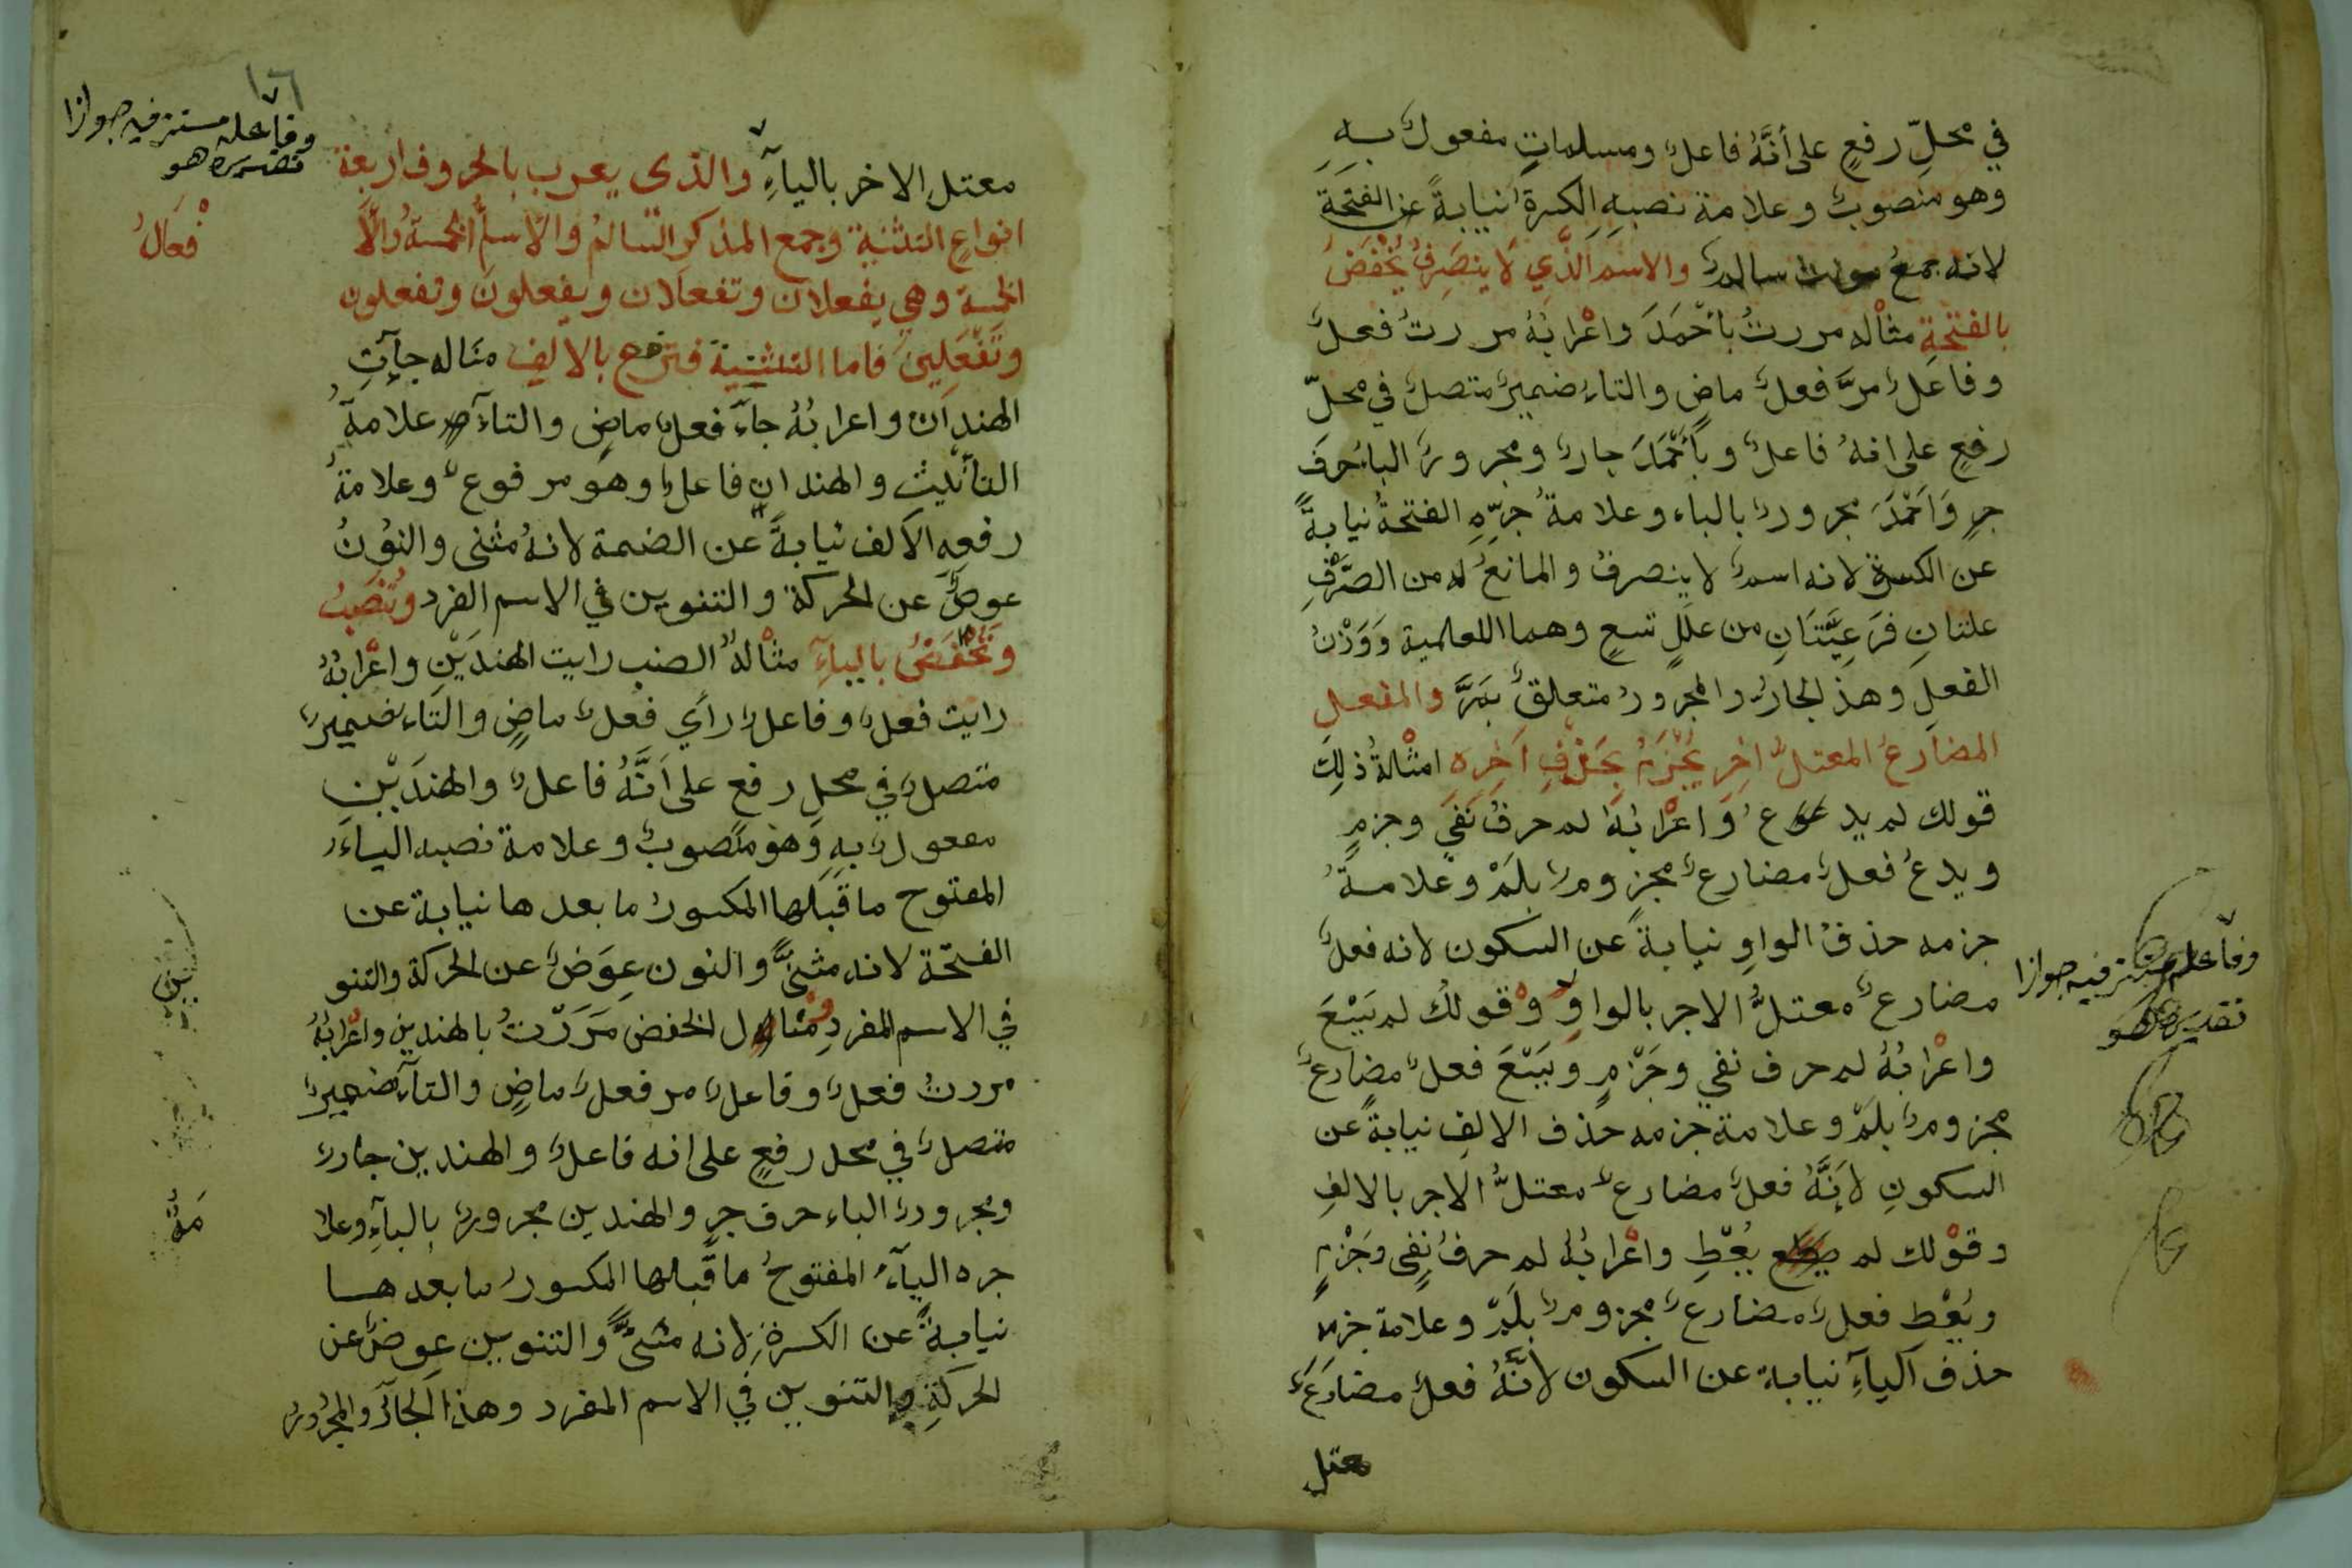 في محلّ رفعٍ على أنَّهُ فاعلٌ ومسلماتٍ مفعولٌ بهِ
وهو منصوبٌ وعلامة نصبهِ الكسرةُ نيابةً عن الفتحَةِ
لانه جمعُ مونث سالمٌ والاسم الَّذي لَا ينصَرِفُ يُخْفَضُ
بالفتْحَةِ مثاله مررتُ بأحْمَدَ واعْرابُهُ مررتُ فعلٌ
وفاعلٌ مرَّ فعلٌ ماضٍ والتاءُ ضميرٌ متصلٌ في محلّ
رفعٍ على انهُ فاعلٌ وبأَحْمَدَ جارٌ ومجرورٌ الباءُ حرفُ
جرٍ وَاَحْمَدَ مجرورٌ بالباء وعلامةُ جرِّهِ الفتحةُ نيابةً
عن الكسرة لانه اسمٌ لا ينصرفُ والمانعُ له من الصَّرْفِ
علتانِ فَرَعِيَّتَانِ من علَلٍ تسعٍ وهما العلمية وَوَزْنُ
الفعلِ وهذ الجارُ والمجرورُ متعلقٌ بمَرَّ والفعل
المضارعُ المعتلُّ اخِرِ يُجْزَمُ بِحَذْفِ اَخِرِهِ امثْالةُ ذلِكَ
قولك لم يدعُ وَاعْرابُهُ لم حرفُ نَفيٍ وجزمٍ
ويدعُ فعلٌ مضارعٌ مجزومٌ بلَمْ وعلامةُ
جزمه حذفُ الواوِ نيابةً عن السكون لانه فعلٌ
مضارعٌ معتلُّ الاخر بالواوِ وقولكُ لم يَبْعَ
واعْرابُهُ لم حرف نفي وجَزْمٍ ويَبْعَ فعلٌ مضارعٌ
مجزومٌ بلَمْ وعلامة جزمه حذف الالِفِ نيابةً عن
السكونِ لاَنَّهُ فعلٌ مضارعٌ معتلُّ الاخر بالالفِ
وقوْلك لم يُعْطِ واعْرابُهُ لم حرفُ نفي وَجَزْمٍ
ويُعْطِ فعلٌ مضارعٌ مجزومٌ بلَمْ وعلامة جزمه
حذف الياءِ نيابة عن السكون لأنَّهُ فعلٌ مضارعٌ
معتل
وفاعله مستتر فيه جوازا
تقديره هو
معتل الاخر بالياءِ والذى يعرب بالحروف اربعة
انواعِ التثنية وجمع المذكر السالمُ والاسمآُ الخمسةُ والاَ
فْعَالُ
الخمسة وهي يفعلان وتفعلان ويفعلونَ وتفعلون
وتَفْعَلِينَ فاما التثنية فترفع بالالِفِ مثاله جآءَتِ
الهندانِ واعرابُهُ جآءَ فعلٌ ماضٍ والتآءُ علامةُ
التأنيث والهندانِ فاعلٌ وهو مرفوعٌ وعلامةُ
رفعهِ الألف نيابةً عن الضمة لانهُ مثنى والنُونُ
عوضٌ عن الحركة والتنوين في الاسم الفرد وتُنْصَبُ
وَتُخْفَضُ بالياءِ مثْالهُ الصنب رايت الهندَيْنِ واعْرابُهُ
رايت فعلٌ وفاعلٌ رأي فعلٌ ماضٍ والتاءُ ضميرٌ
متصلٌ في محلِ رفعٍ على اَنَّهُ فاعلٌ والهندَيْنِ
مفعولٌ بهِ وَهُو منصوبٌ وعلامة نصبه الياءُ
المفتوح ما قَبلها المكسورُ ما بعدها نيابة عن
الفتحة لانه مثنىً والنون عِوَضٌ عن الحركة والتنو
ين
في الاسم المفردِ ومثال الخفض مَرَرْتُ بالهندينِ واعْرابُهُ
مررتُ فعلٌ وفاعلٌ مر فعلٌ ماضٍ والتآءُ ضميرٌ
متصلٌ في محل رفعٍ على انه فاعلٌ والهندين جارٌ
ومجرورٌ الباء حرف جرٍ والهندين مجرورٌ بالبآءِ وعلا
مةُ
جره اليآءُ المفتوحُ ما قبلها المكسورُ ما بعدها
نيابةً عن الكسرةِ لانه مثنىً والتنوين عِوضٌ عن
الحركَةِ والتنوين في الاسم المفرد وهذا الجارُ والمجرُورُ
وفاعله مستتر فيه جوازا
تقديره هو